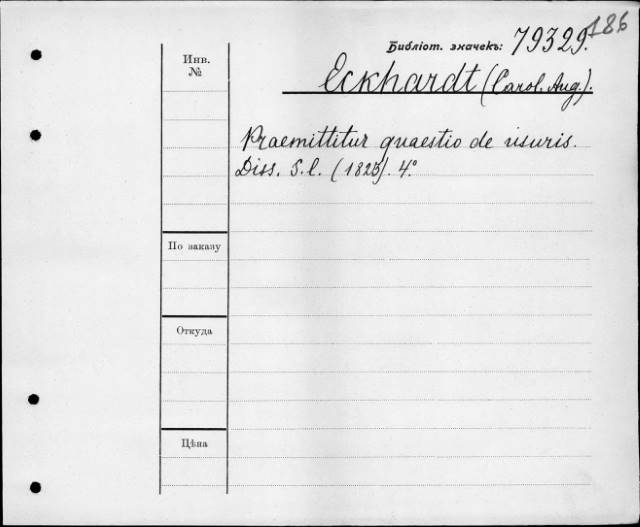 186
Библіот. значекъ: 79329.
Инв.
№
Eckhardt (Carol. Aug.).
Praemittitur quaestio de usuris.
Diss. S. l. (1825). 4°
По заказу
Откуда
Цѣна